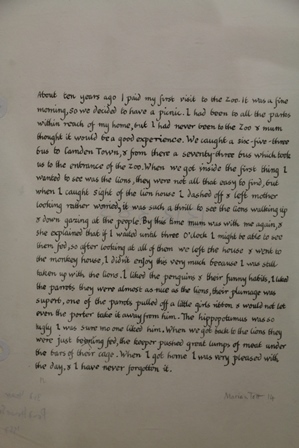 About ten years ago I paid my first visit to the Zoo. It was a fine
morning, so we decided to have a picnic. I had been to all the parks
within reach of my home, but I had never been to the Zoo & mum
thought it would be a good experience. We caught a six-five-three
bus to Camden Town, & from there a seventy-three bus which took
us to the entrance of the Zoo. When we got inside the first thing I
wanted to see was the lions, they were not all that easy to find, but
when I caught sight of the lion house I dashed off & left mother
looking rather worried, it was such a thrill to see the lions walking up
& down gazing at the people. By this time mum was with me again, &
she explained that if I waited until three O'clock I might be able to see
them fed, so after looking at all of them we left the house & went to
the monkey house, I didn't enjoy this very much because I was still
taken up with the lions. I liked the penguins & their funny habits, I liked
the parrots they were almost as nice as the lions, their plumage was
superb, one of the parrots pulled off a little girls ribbon & would not let
even the porter take it away from him. The hippopotamus was so
ugly I was sure no one liked him. When we got back to the lions they
were just being fed, the keeper pushed great lumps of meat under
the bars of their cage. When I got home I was very pleased with
the day, & I have never forgotten it.